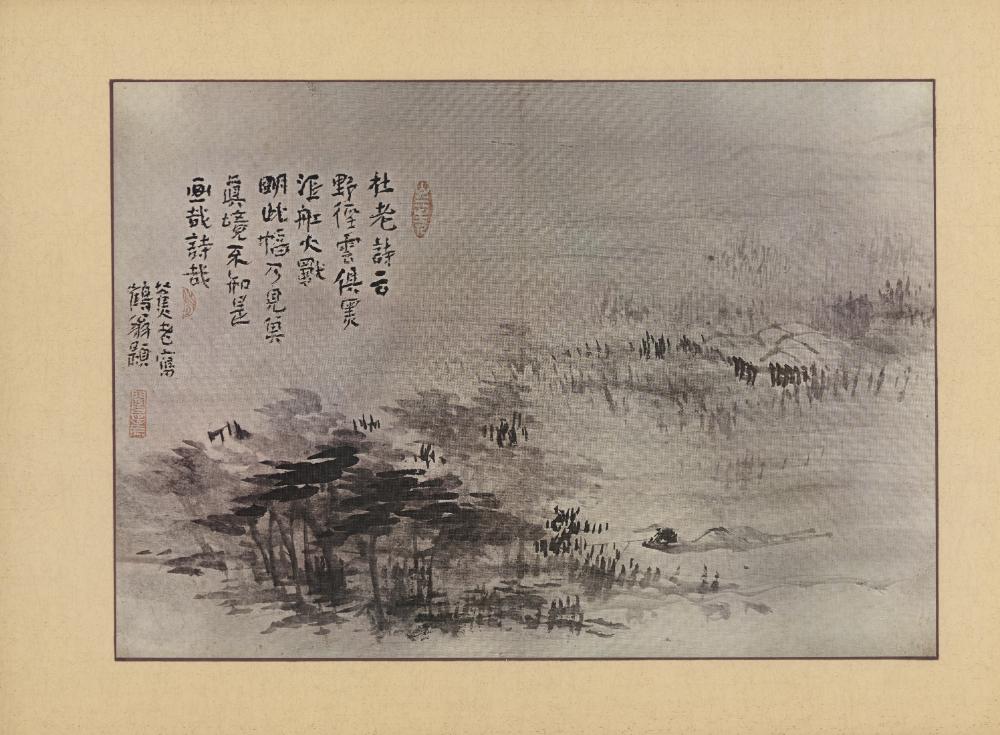 杜老詩云
野徑雲俱黑
江舡火獨
明此幅乃見其
真境不知是
画哉詩哉
蕉老寫
鶴翁題